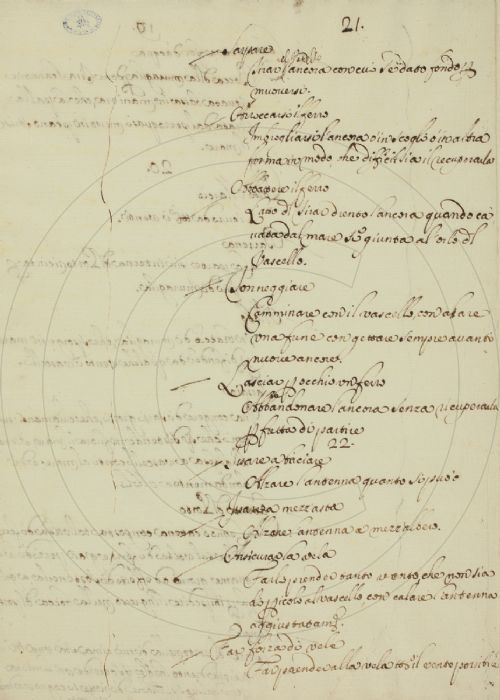 21.
Sarpare
Tirar l'ancora con cui s'è dato fondo p
muoversi.
il ferro
Imbrogliarsi l'ancora in scoglio o in altra
forma in modo che difficil sia il recuperarla
il ferro
l'atto di tirar drento l'ancora quando ca
vata dal mare sia giunta al orlo del
Vascello.
Tonneggiare
Camminare con il vascello con alare
una fune con gettare sempre avanti
nuove ancore.
Lasciar p occhio un ferro
Abbandonare l'ancora senza recuperarla
p fretta di partire
22.
Issare a baciare
Alzare l'antenna quanto si può
Issar a mezz'asta
Alzare l'antenna a mezz'albero.
Assicurar la vela
Farli prender tanto vento, che non sia
di pericolo al vascello con calare l'antenna
aggiustatam.
Far forza di vele
Far prender alla vela tutto il vento possibile